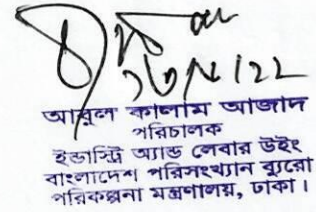 আবুল কালাম আজাদ
পরিচালক
ইন্ডাস্ট্রি অ্যান্ড লেবার উইং
বাংলাদেশ পরিসংখ্যান ব্যুরো
পরিকল্পনা মন্ত্রণালয়, ঢাকা।